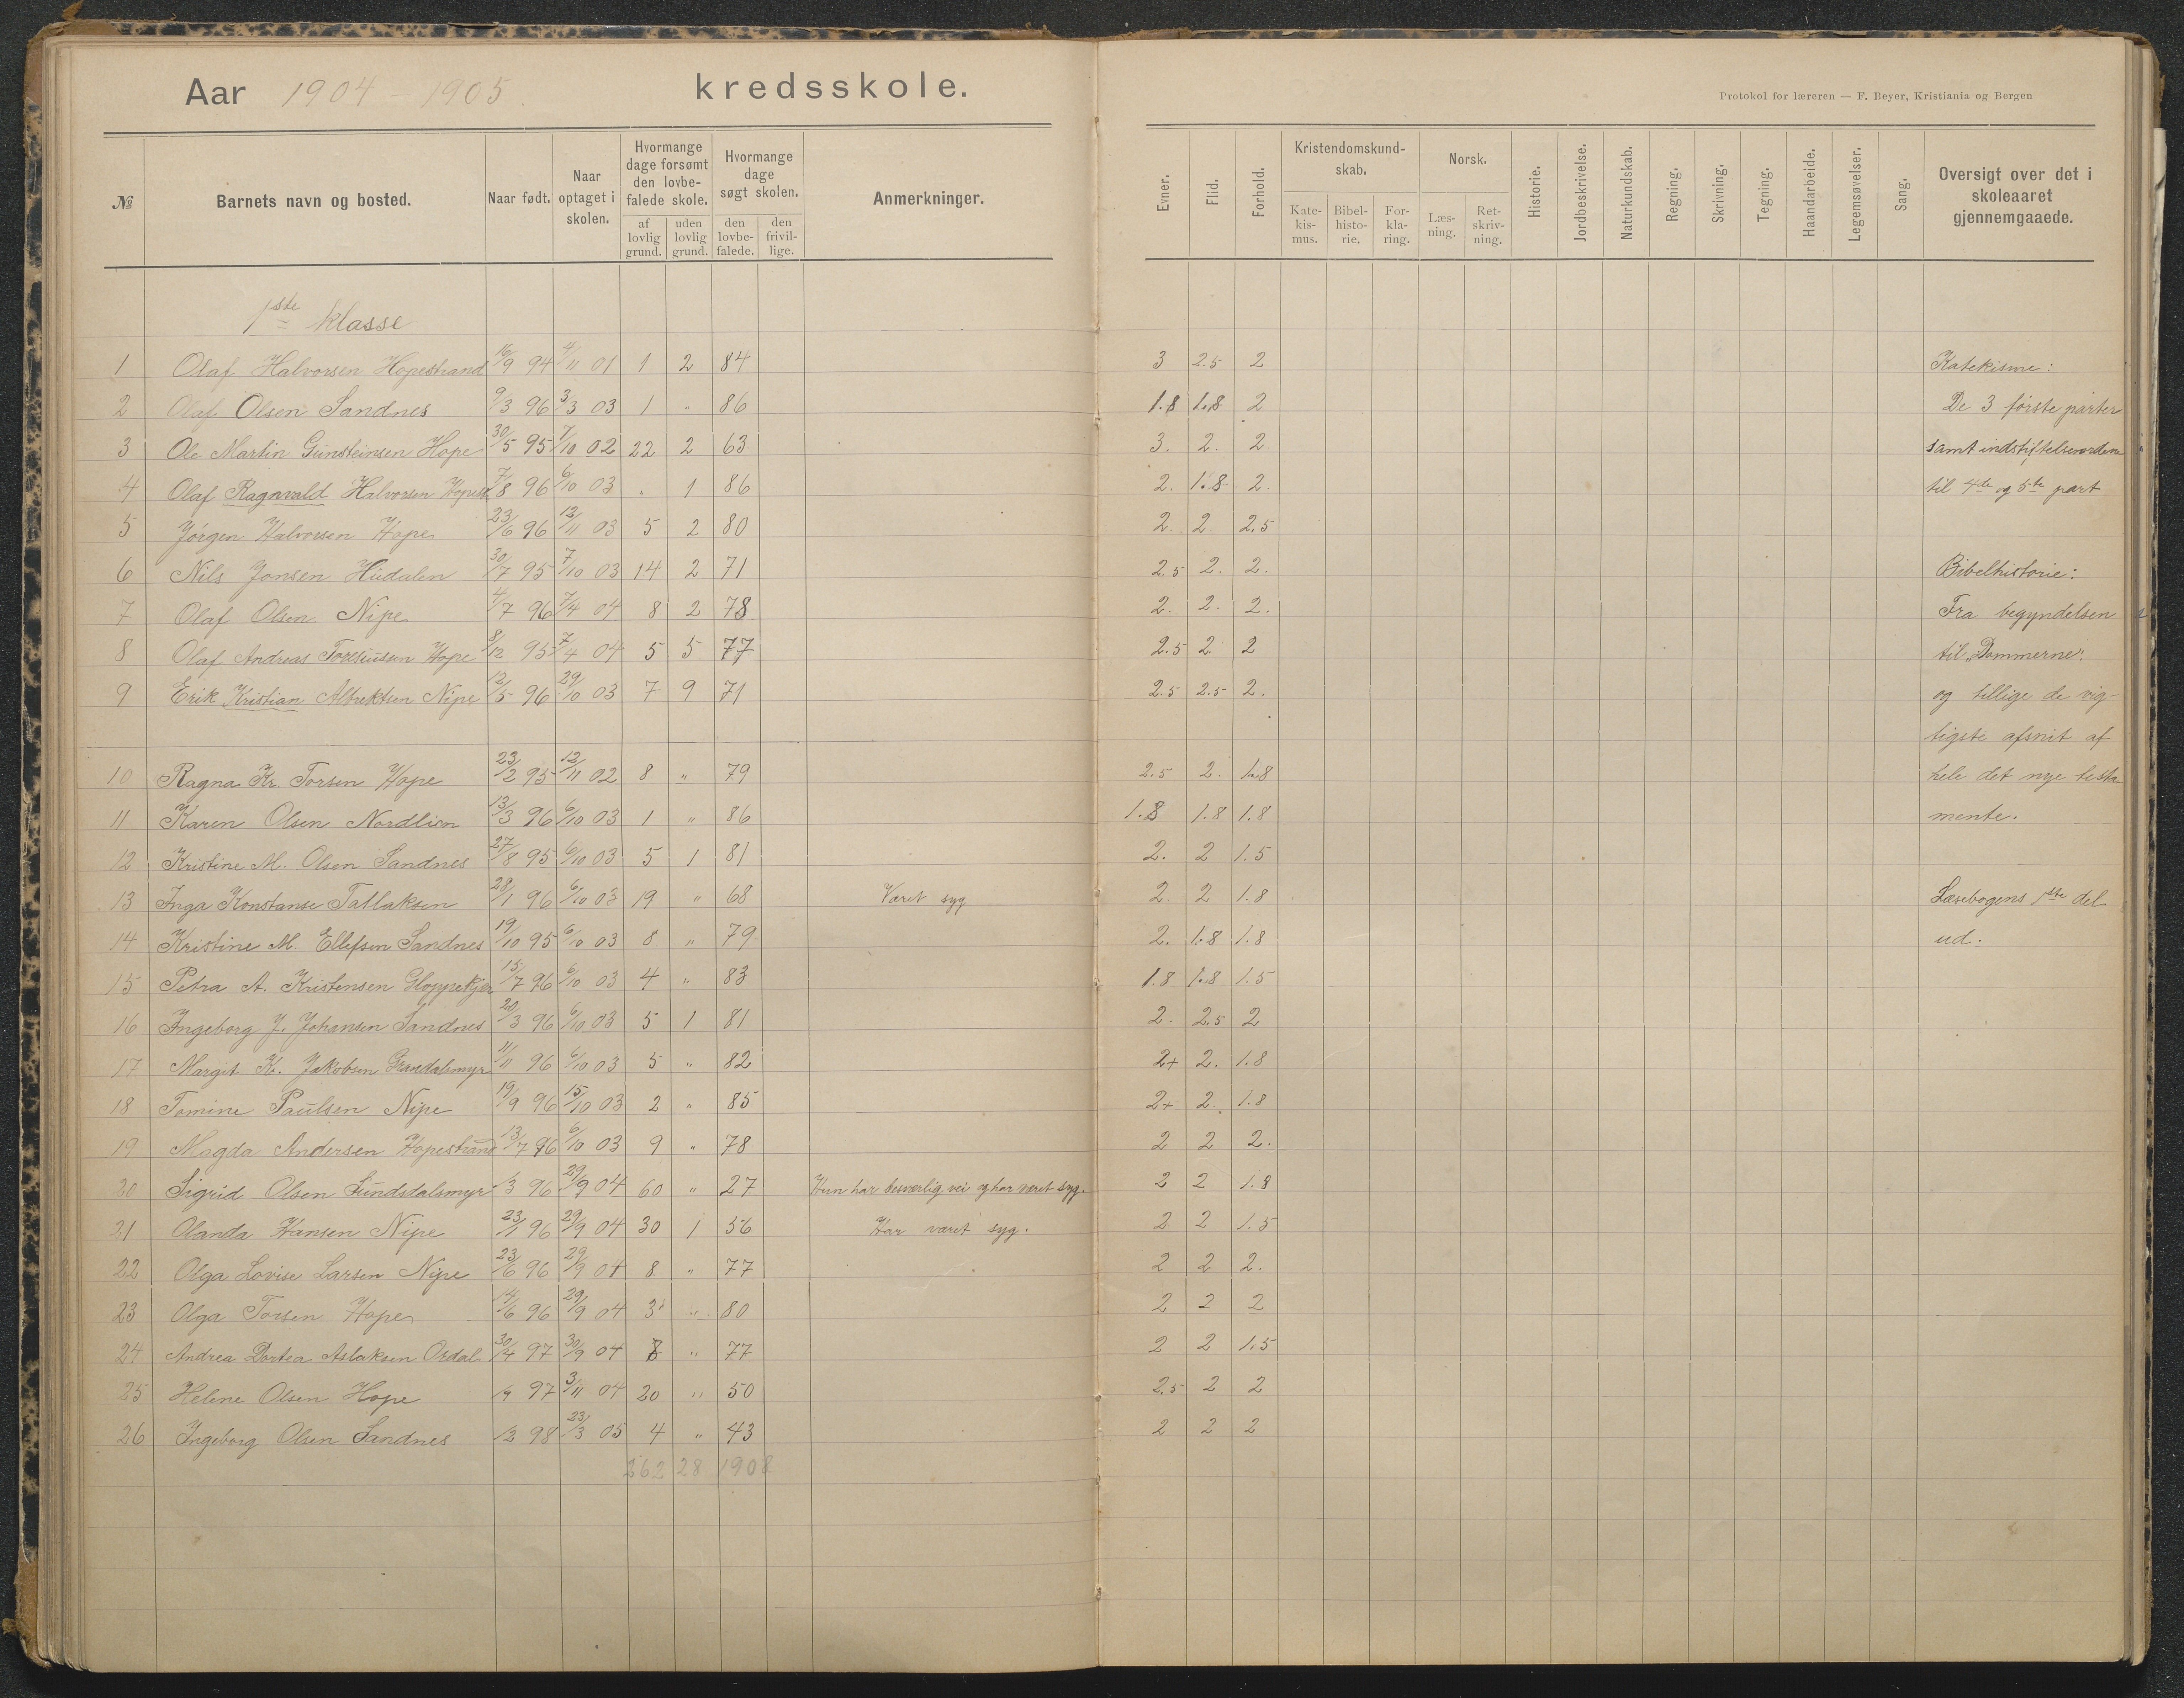 Aar 1904 – 1905. kredsskole.
Protokol for læreren — F. Beyer, Kristiania og Bergen
№ Barnets navn og bosted. Naar født. Naar optaget i skolen. Hvormange dage forsømt den lovbefalede skole. af lovlig grund. uden lovlig grund. Hvormange dage søgt skolen. den lovbefalede. den frivillige. Anmerkninger. Evner. Flid. Forhold. Kristendomskundskab. Katekismus. Bibelhistorie. Forklaring. Norsk. Læsning. Retskrivning. Historie. Jordbeskrivelse. Naturkundskab. Regning. Skrivning. Tegning. Haandarbeide. Legemsøvelser. Sang. Oversigt over det i skoleaaret gjennemgaaede.
1ste klasse
1 Olaf Halvorsen Hopestrand 16/9 94 4/11 01 1 2 84 3 2.5 2 Katekisme:
2 Olaf Olsen Sandnes 9/3 96 3/3 03 1 " 86 1.8 1.8 2 De 3 første parter
3 Ole Martin Gunsteinsen Hope 30/5 95 7/10 02 22 2 63 3. 2. 2 samt indstiftelsesordene
4 Olaf Ragnvald Halvorsen Hopest 7/8 96 6/10 03 . 1 86 2. 1.8 2. til 4de og 5te part
5 Jørgen Halvorsen Hope 23/6 96 13/11 03 5 2 80 2. 2 2.5
6 Nils Jonsen Hudalen 30/7 95 7/10 03 14 2 71 2.5 2. 2. Bibelhistorie:
7 Olaf Olsen Nipe 4/7 96 7/4 04 8 2 78 2. 2. 2. Fra begyndelsen
8 Olaf Andreas Hope 8/12 95 7/4 04 5 5 77 2.5 2 2 til „Dommerne".
9 Erik Kristian Albrektsen Nipe 12/5 96 29/10 03 7 9 71 2.5 2.5 2. og tillige de vig-
tigste afsnit af
10 Ragna Kr. Torsen Hope 23/2 95 12/11 02 8 " 79 2.5 2. 1.8 hele det nye testa
11 Karen Olsen Nordlien 13/3 96 6/10 03 1 " 86 1.8 1.8 1.8 mente.
12 Kristine M. Olsen Sandnes 27/8 95 6/10 03 5 1 81 2. 2 1.5
13 Inga Konstanse Tallaksen 28/1 96 6/10 03 19 " 68 Været syg 2. 2 1.8 Læsebogens 1ste del
14 Kristine M. Ellefsen Sandnes 19/10 95 6/10 03 8 " 79 2. 1.8 1.8 ud.
15 Petra A. Kristensen Gloppekjær 15/7 96 6/10 03 4 " 83 1.8 1.8 1.5
16 Ingeborg J. Johansen Sandnes 20/3 96 6/10 03 5 1 81 2. 2.5 2
17 Margit K. Jakobsen 11/11 96 6/10 03 5 " 82 2+ 2. 1.8
18 Tomine Paulsen Nipe 19/9 96 15/10 03 2 " 85 2+ 2. 1.8
19 Magda Andersen Hopestrand 13/7 96 6/10 03 9 " 78 2 2 2.
20 Sigrid Olsen Sundsdalsmyr /3 96 29/9 04 60 " 27 Hun har besværlig vei og har været syg. 2 2 1.8
21 Olanda Hansen Nipe 23/1 96 29/9 04 30 1 56 Har været syg. 2 2 1.5
22 Olga Lovise Larsen Nipe 23/6 96 29/9 04 8 " 77 2 2 2.
23 Olga Torsen Hope 14/6 96 29/9 04 3 " 80 2 2 2
24 Andrea Dortea Aslaksen Ordal 30/4 97 30/9 04 8 " 77 2 2 1.5
25 Helene Olsen Hope /9 97 3/11 04 20 " 50 2.5 2 2
26 Ingeborg Olsen Sandnes /2 98 23/3 05 4 " 43 2 2 2
262 28 1908